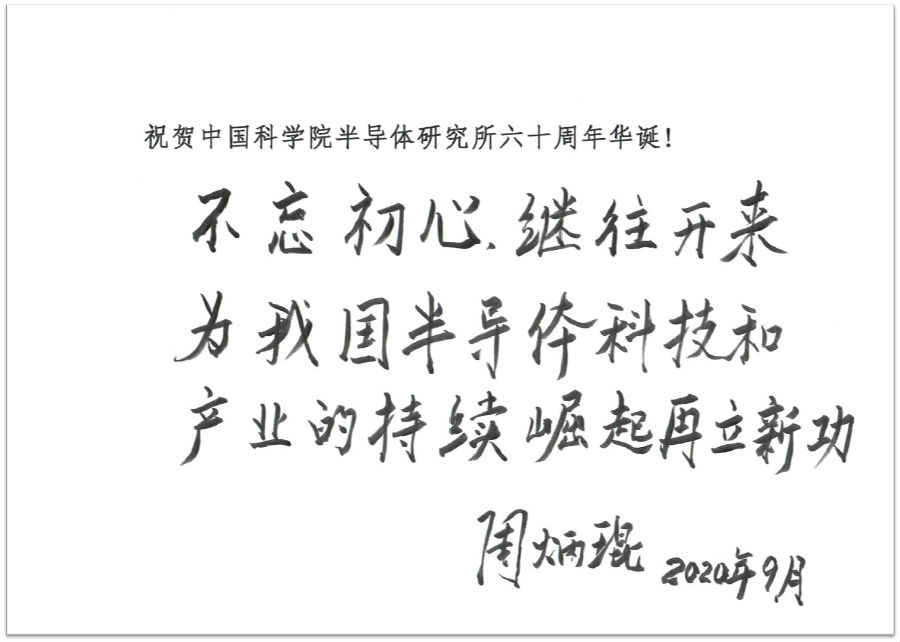 祝贺中国科学院半导体研究所六十周年华诞!
不忘初心、继往开来
为我国半导体科技和
产业的持续崛起再立新功
周炳琨 2020年9月